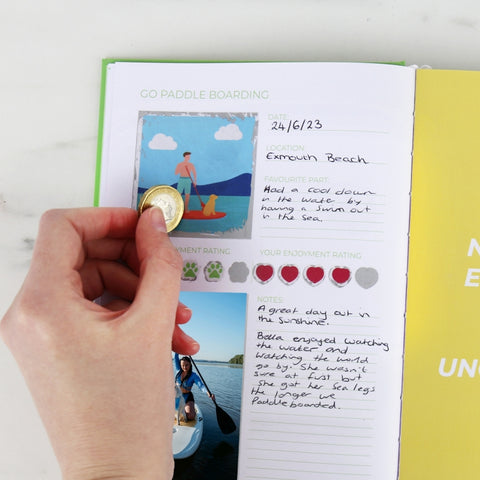 GO PADDLE BOARDING
DATE:
24/6/23
LOCATION:
Exmouth Beach
FAVOURITE PART:
Had a cool down
in the water by
having a swim out
in the sea.
YMENT RATING
YOUR ENJOYMENT RATING
NOTES:
A great day out in
the sunshine.
Bella enjoyed watching
the water and
watching the world
go by. She wasn't
sure at first but
She got her sea legs
the longer we
Paddleboarded.
N
E
UNC